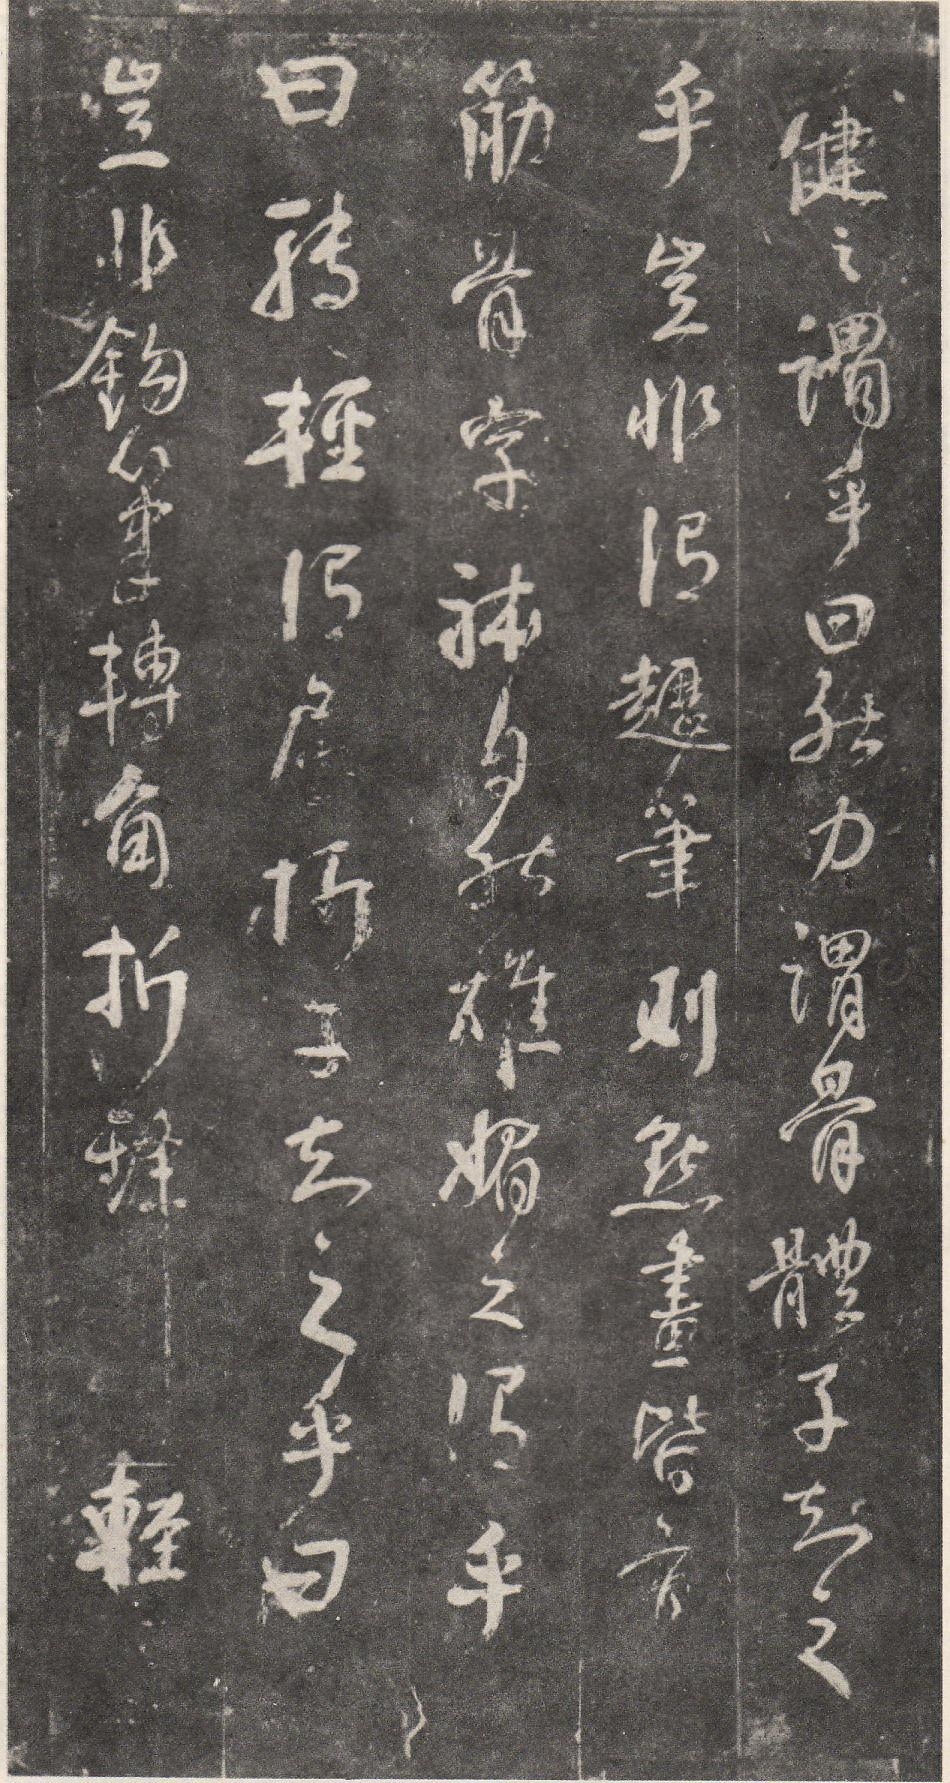 健之謂乎曰然力謂骨體子知之
乎豈非謂趯筆則點畫皆有
筋骨字體自然雄媚之謂乎
曰轉輕謂屈折子知之乎曰
豈非鈎筆轉角折鋒輕